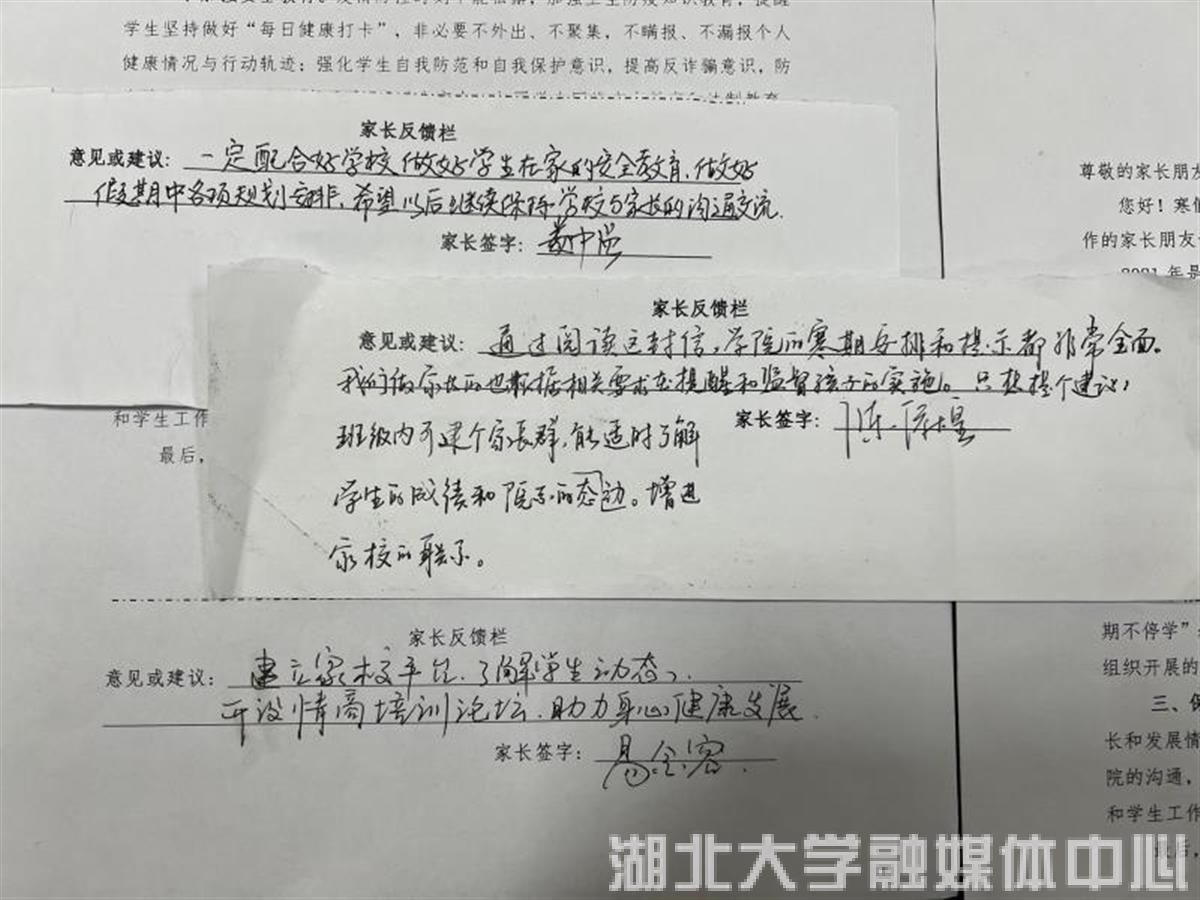 学生坚持做好“每日健康打卡”，非必要不外出、不聚集，不瞒报、不漏报个人
健康情况与行动轨迹；强化学生自我防范和自我保护意识，提高反诈骗意识，防
家长反馈栏
意见或建议：一定配合好学校做好学生在家的安全教育，做好
假期中各项规划安排，希望以后继续保持学校与家长的沟通交流.
家长签字：
家长反馈栏
意见或建议：通过阅读这封信，学院的寒期安排和提示都非常全面。
我们做家长的也根据相关要求在提醒和监督孩子的实施。只想提个建议：
班级内可建个家长群，能适时了解
学生的成绩和院系的态边。增进
家校的联系。
家长签字：陈
和学生工作
最后，
家长反馈栏
意见或建议：建立家校平台、了解学生动态、
开设情商培训论坛、助力身心健康发展.
家长签字：易
尊敬的家长朋友
您好！寒假
作的家长朋友
2021 年是
期不停学”
组织开展的
三、
长和发展情
院的沟通，
和学生工作
最后，
湖北大学融媒体中心